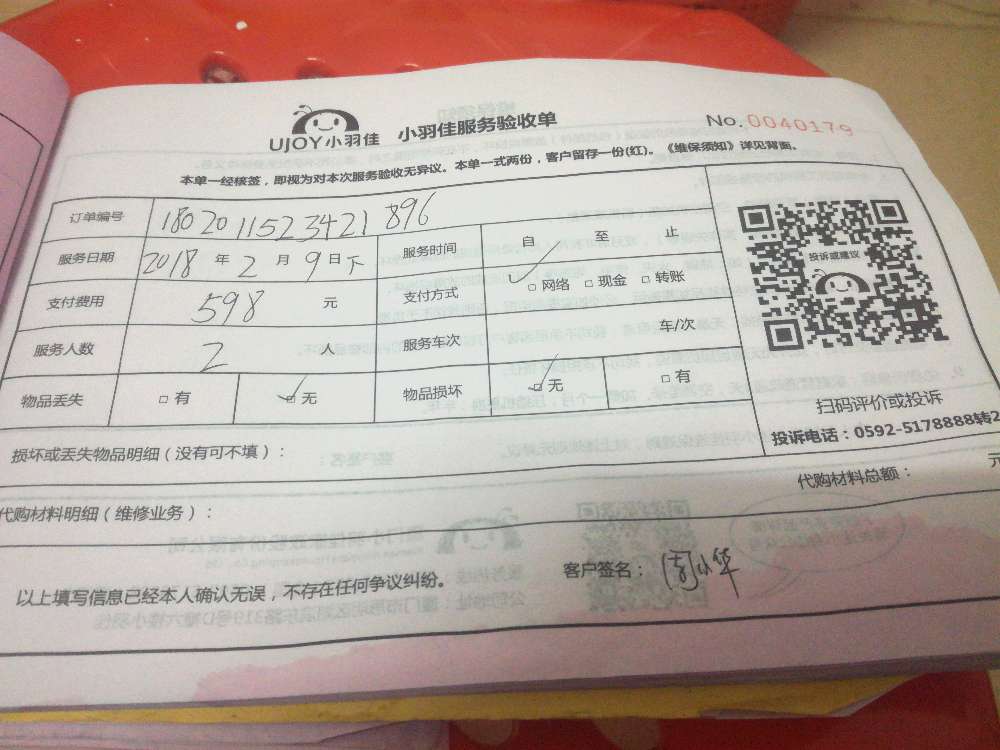 UJOY小羽佳 小羽佳服务验收单 No.0040179
本单一经核签，即视为对本次服务验收无异议。本单一式两份，客户留存一份(红)。《维保须知》详见背面。
订单编号 1802011523421896
服务日期 2018年2月9日下 服务时间 自 至 止
支付费用 598 元 支付方式 □网络 □现金 □转账
服务人数 2 人 服务车次 车/次
物品丢失 □有 □无 物品损坏 □无 □有
投诉或建议
扫码评价或投诉
投诉电话：0592-5178888转2
损坏或丢失物品明细（没有可不填）：
代购材料明细（维修业务）： 代购材料总额： 元
以上填写信息已经本人确认无误，不存在任何争议纠纷。 客户签名：周小华